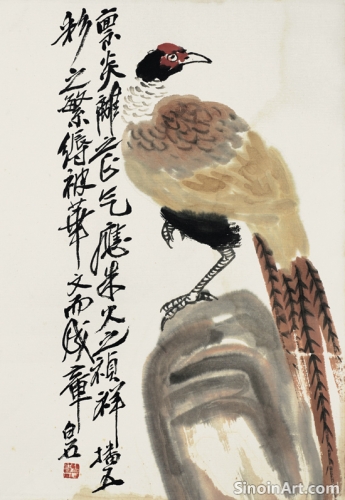 稟炎離之正气應朱火之禎祥播五
彩之繁縟被華文而成章 白石
SinoinArt.com